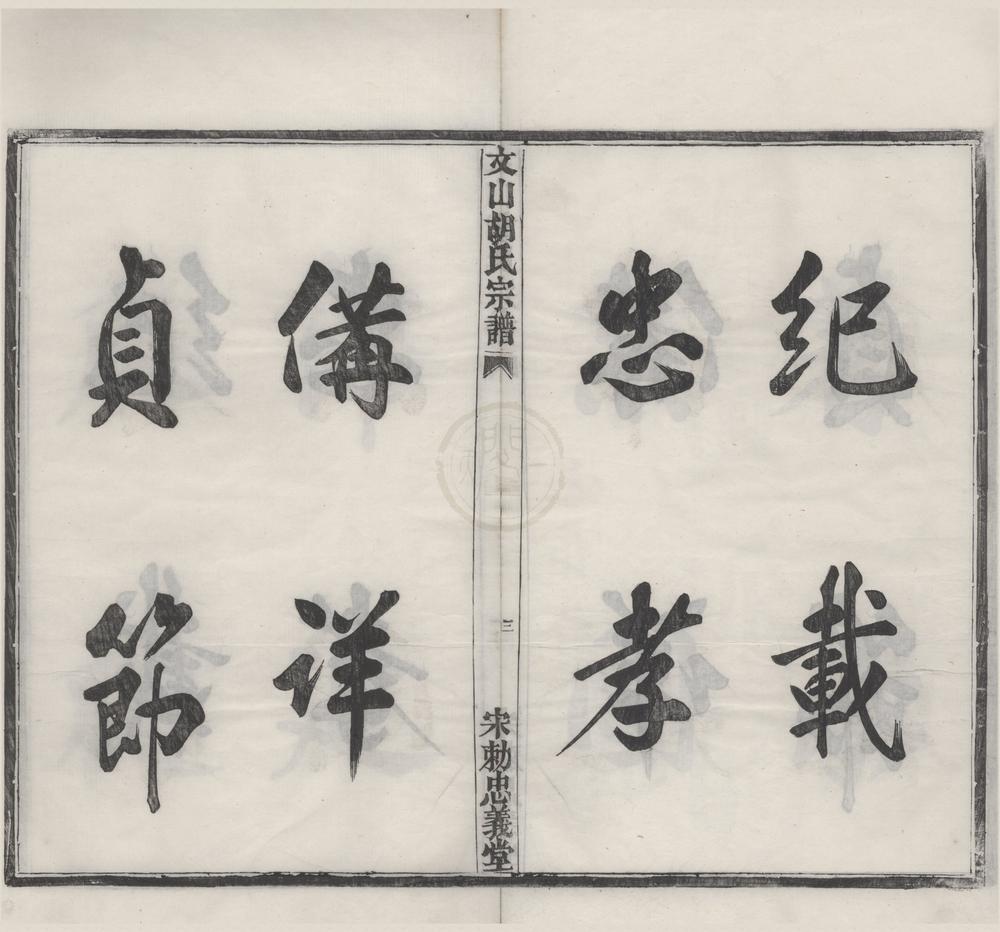 紀載
忠孝
文山胡氏宗譜
三
宋勅忠義堂
備詳
貞節